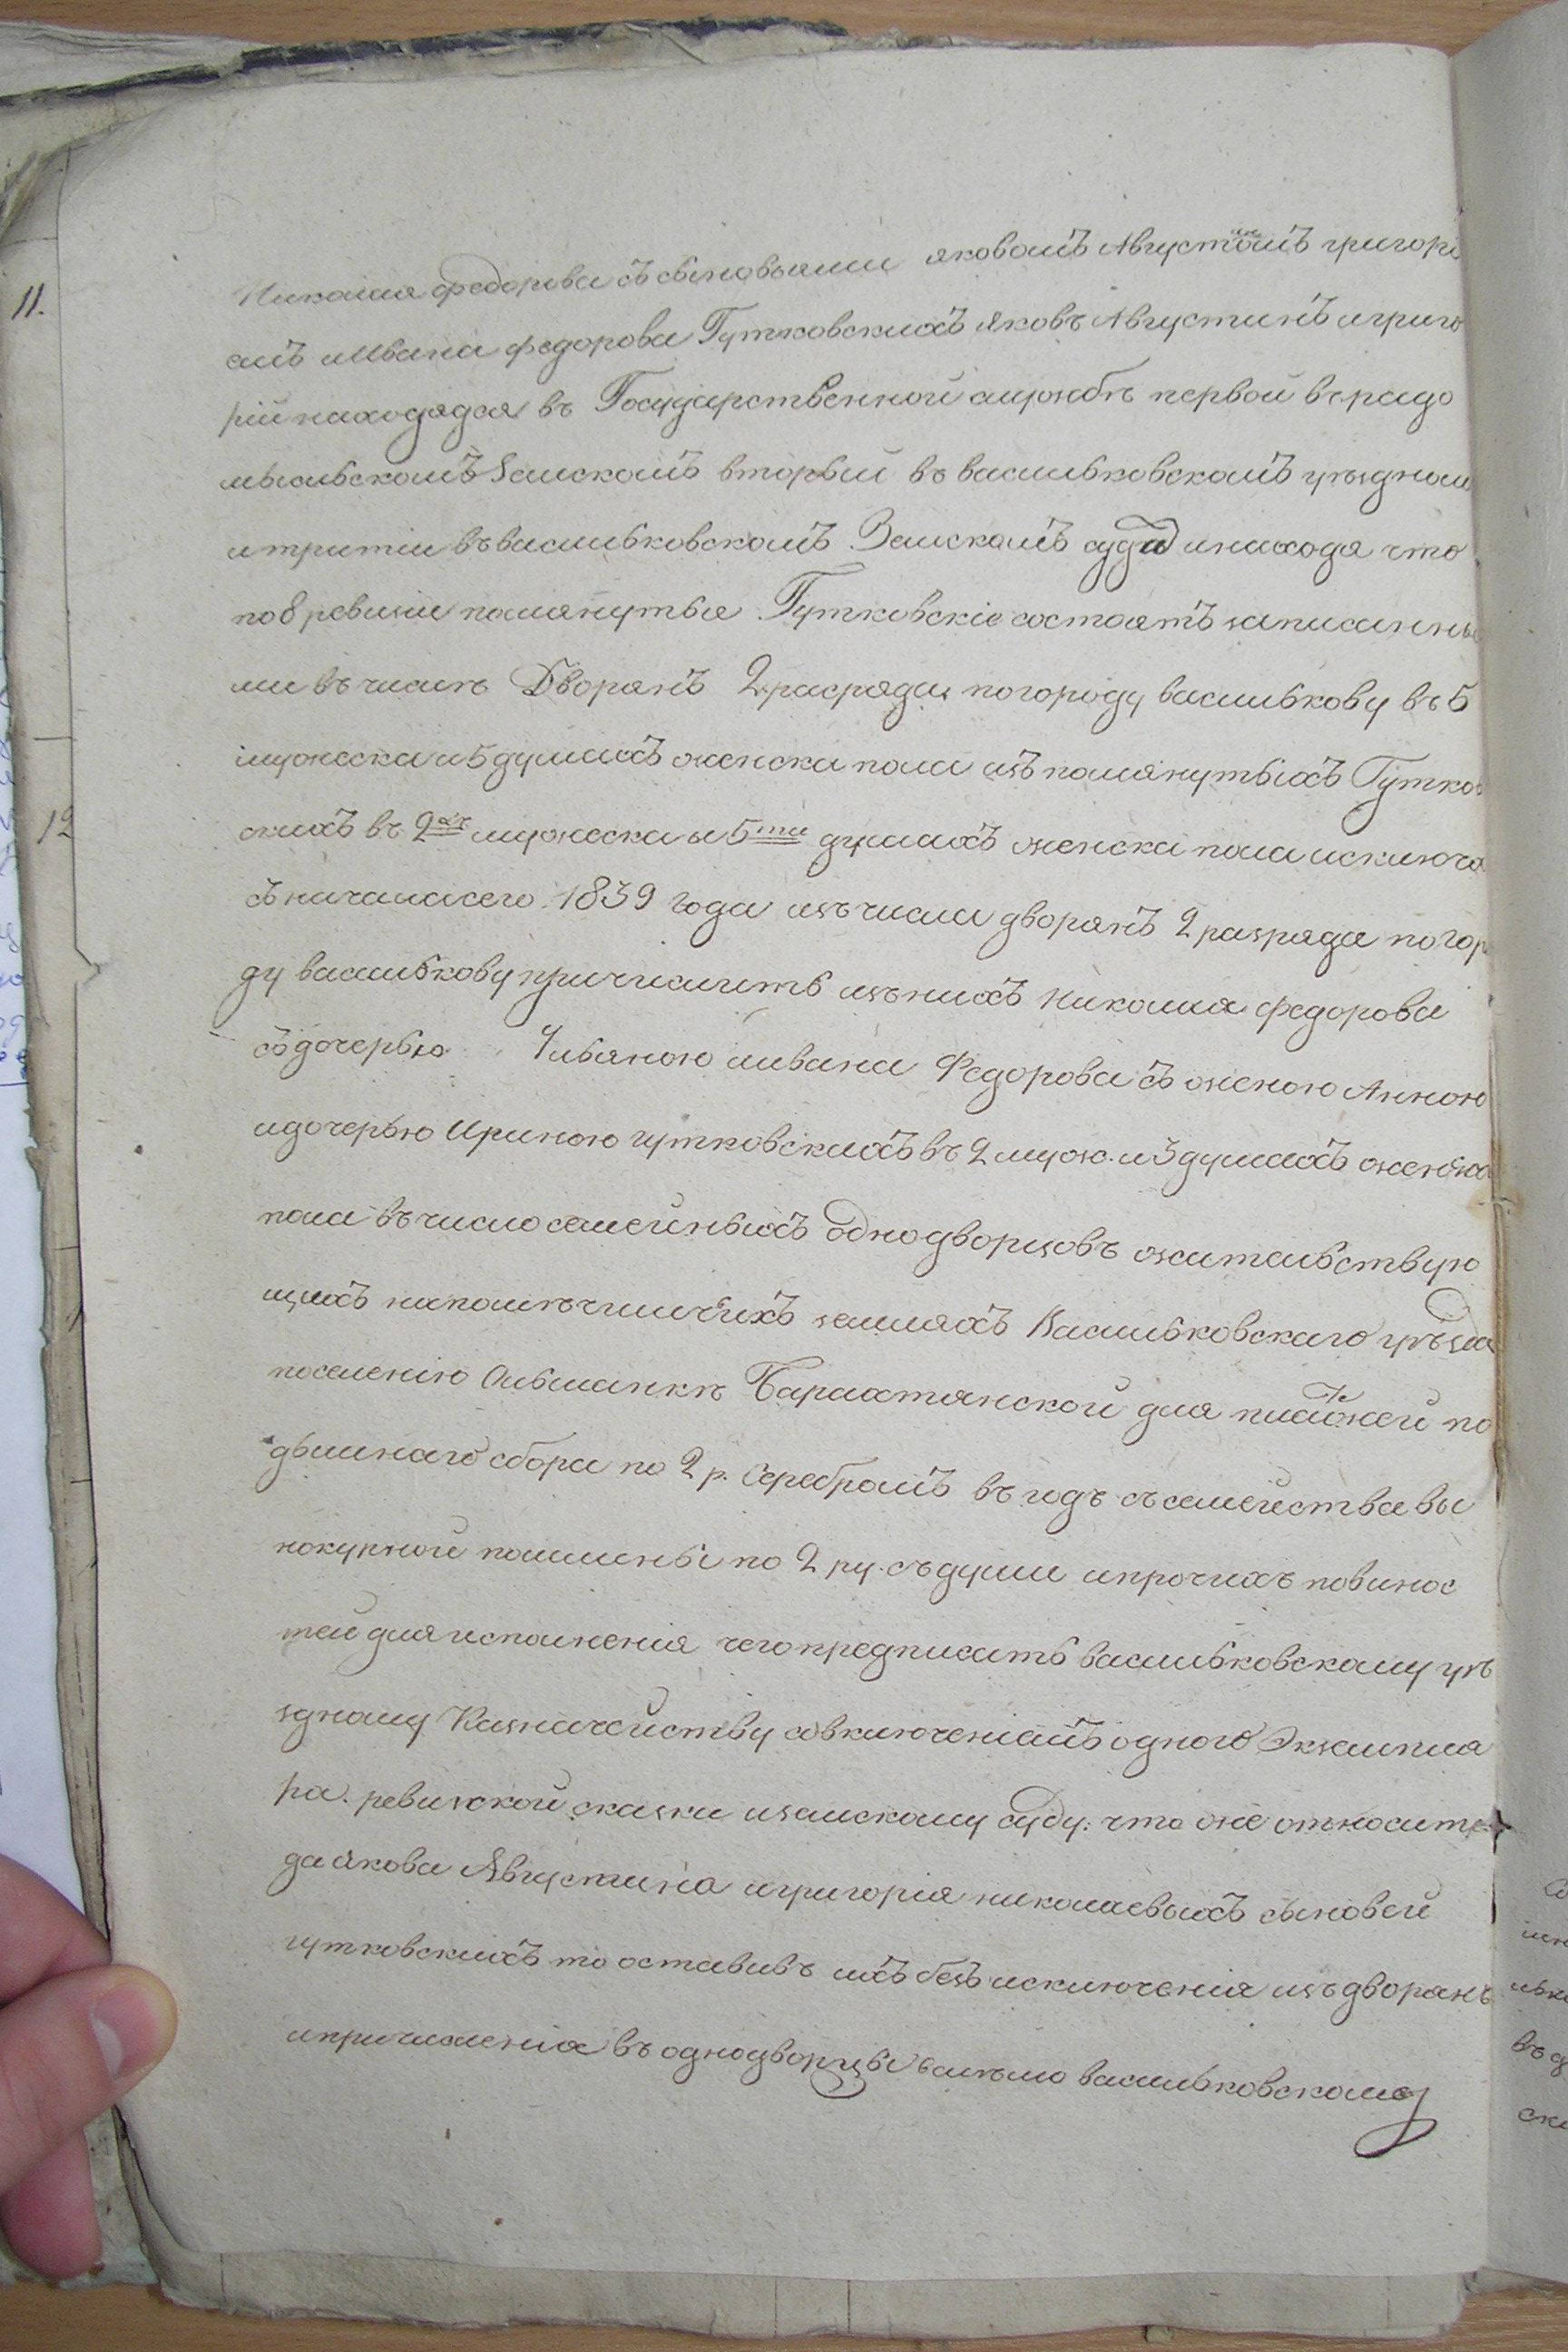 11.
12
Николая федорова съ сыновьями яковомъ Августиномъ григорі
емъ иИвана федорова Гутковскихъ яковъ Августинъ игриго
рій находядся въ Государственной службѣ первой врадо
мысльскомъ Земскомъ вторый въ васильковскомъ уѣздном
итритіи въвасильковскомъ Земскомъ суда инаходя что
по 8 ревизіи помянутые Гутковскіе состоятъ записанны
ми въчислѣ Дворянъ 2 разряда погороду василькову въ 5
мужеска и 5 душахъ женска пола изъ помянутыхъ Гутков
скихъ въ 2хъ мужеска и 5ти душахъ женска пола исключа
съ началасего 1839 года изъчисла дворянъ 2 разряда погор
ду василькову причислить изънихъ николая федорова
содочерью Ульяною ивана Федорова съ женою Анною
идочерью Ириною гутковскихъ въ 2 муж. и 3 душахъ женска
пола въчисло семейныхъ однодворцовъ жительствую
щихъ напомѣчищечихъ земляхъ Васильковскаго уѣзда
поселенію Ольшанкѣ Барахтянской для платежей по
дымнаго сбора по 2 р. Серебромъ въ годъ съсемейства вы
нокурной пошлины по 2 ру. съдуши ипрочихъ повинос
тей дляисполненія чегопредписать васильковскому уѣ
здному Казначейству совключеніемъ одного Экземпля
ра. ревизской сказки иземскому суду: что же относитс
да якова Августина игригорія николаевыхъ сыновей
гутковскихъ то оставивъ ихъ безъ исключенія изъдворянъ
ипричисленія въ однодворцы васильковскому